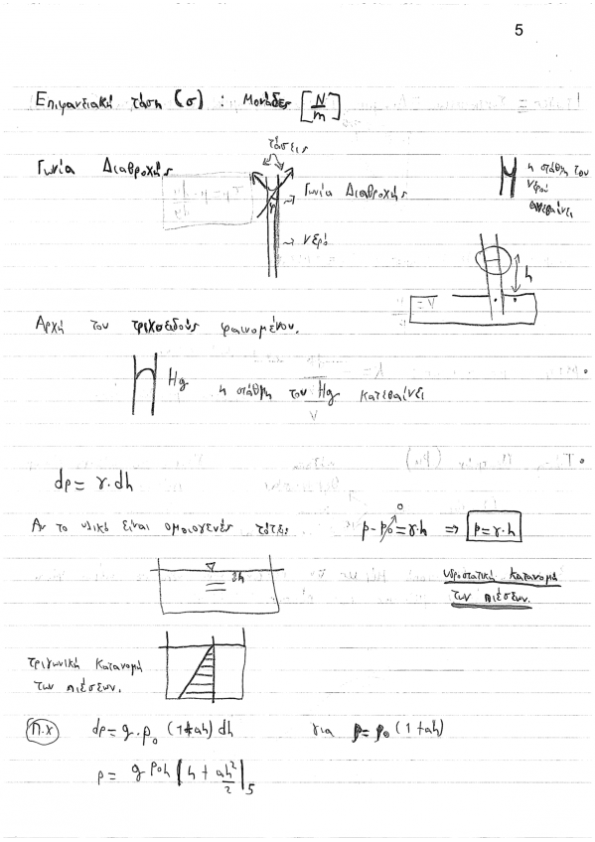 5
Επιφανειακή τάση (σ) : Μονάδες [N/m]
τάσεις
Γωνία Διαβροχής
→ Γωνία Διαβροχής
→ νερό
η στάθμη του
νερού
ανεβαίνει
h
Αρχή του τριχοειδούς φαινομένου.
Hg η στάθμη του Hg κατεβαίνει
dp = γ·dh
Αν το υλικό είναι ομοιογενές τότε: p - p₀ = γ·h ⇒ p = γ·h
0
υδροστατική κατανομή
των πιέσεων.
τριγωνική κατανομή
των πιέσεων.
π.χ dp = g·ρ₀ (1+ah) dh για ρ = ρ₀ (1+ah)